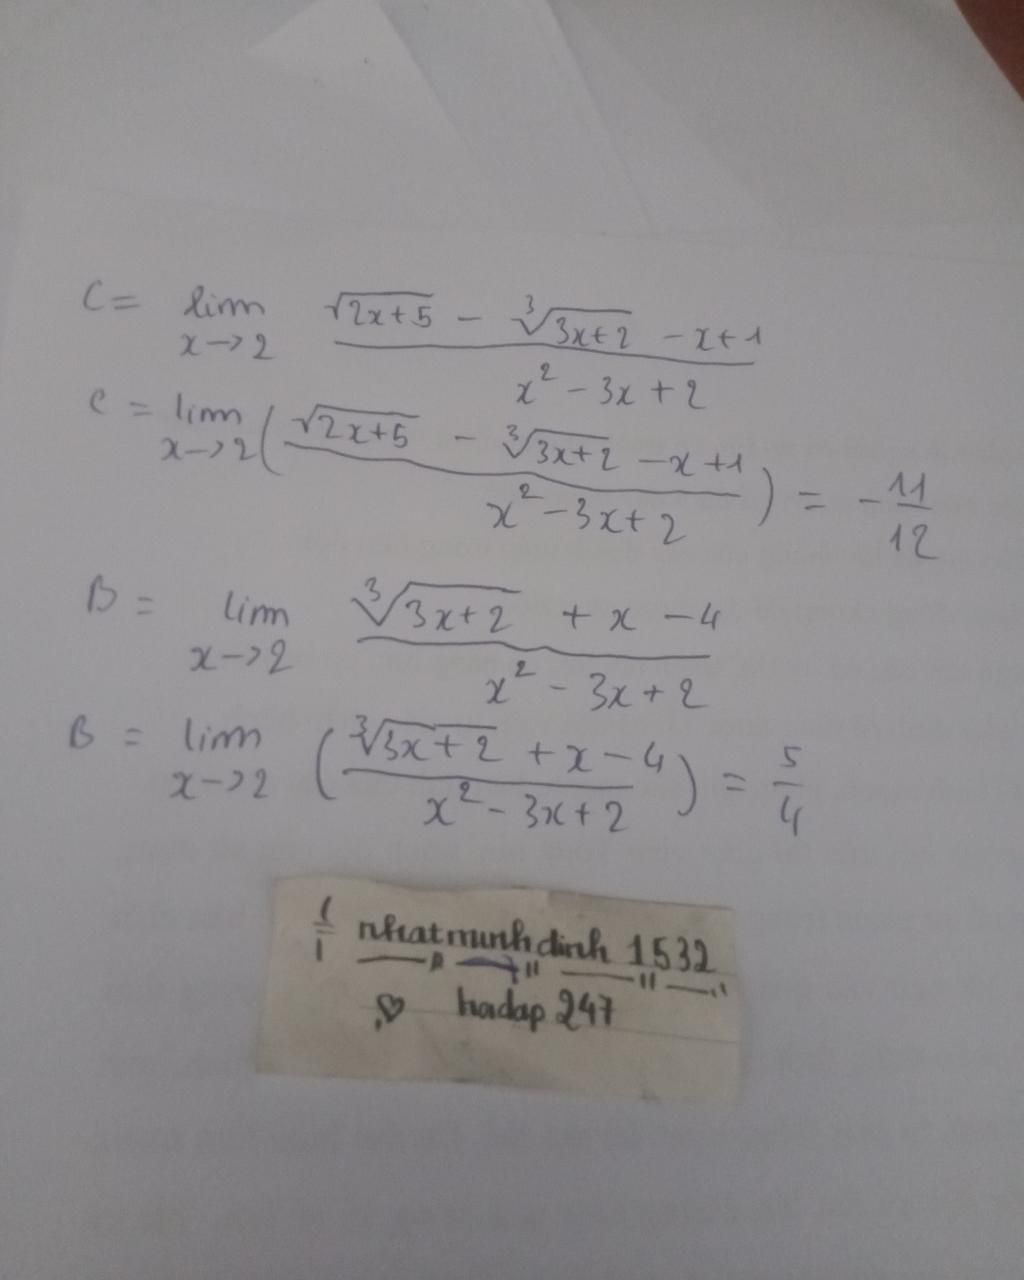 C = lim x->2 (√(2x+5) - ∛(3x+2) - x+1) / (x² - 3x + 2)
C = lim x->2 ( (√(2x+5) - ∛(3x+2) - x+1) / (x² - 3x + 2) ) = - 11/12
B = lim x->2 (∛(3x+2) + x - 4) / (x² - 3x + 2)
B = lim x->2 ( (∛(3x+2) + x - 4) / (x² - 3x + 2) ) = 5/4
nhatminhdinh 1532
hoidap 247